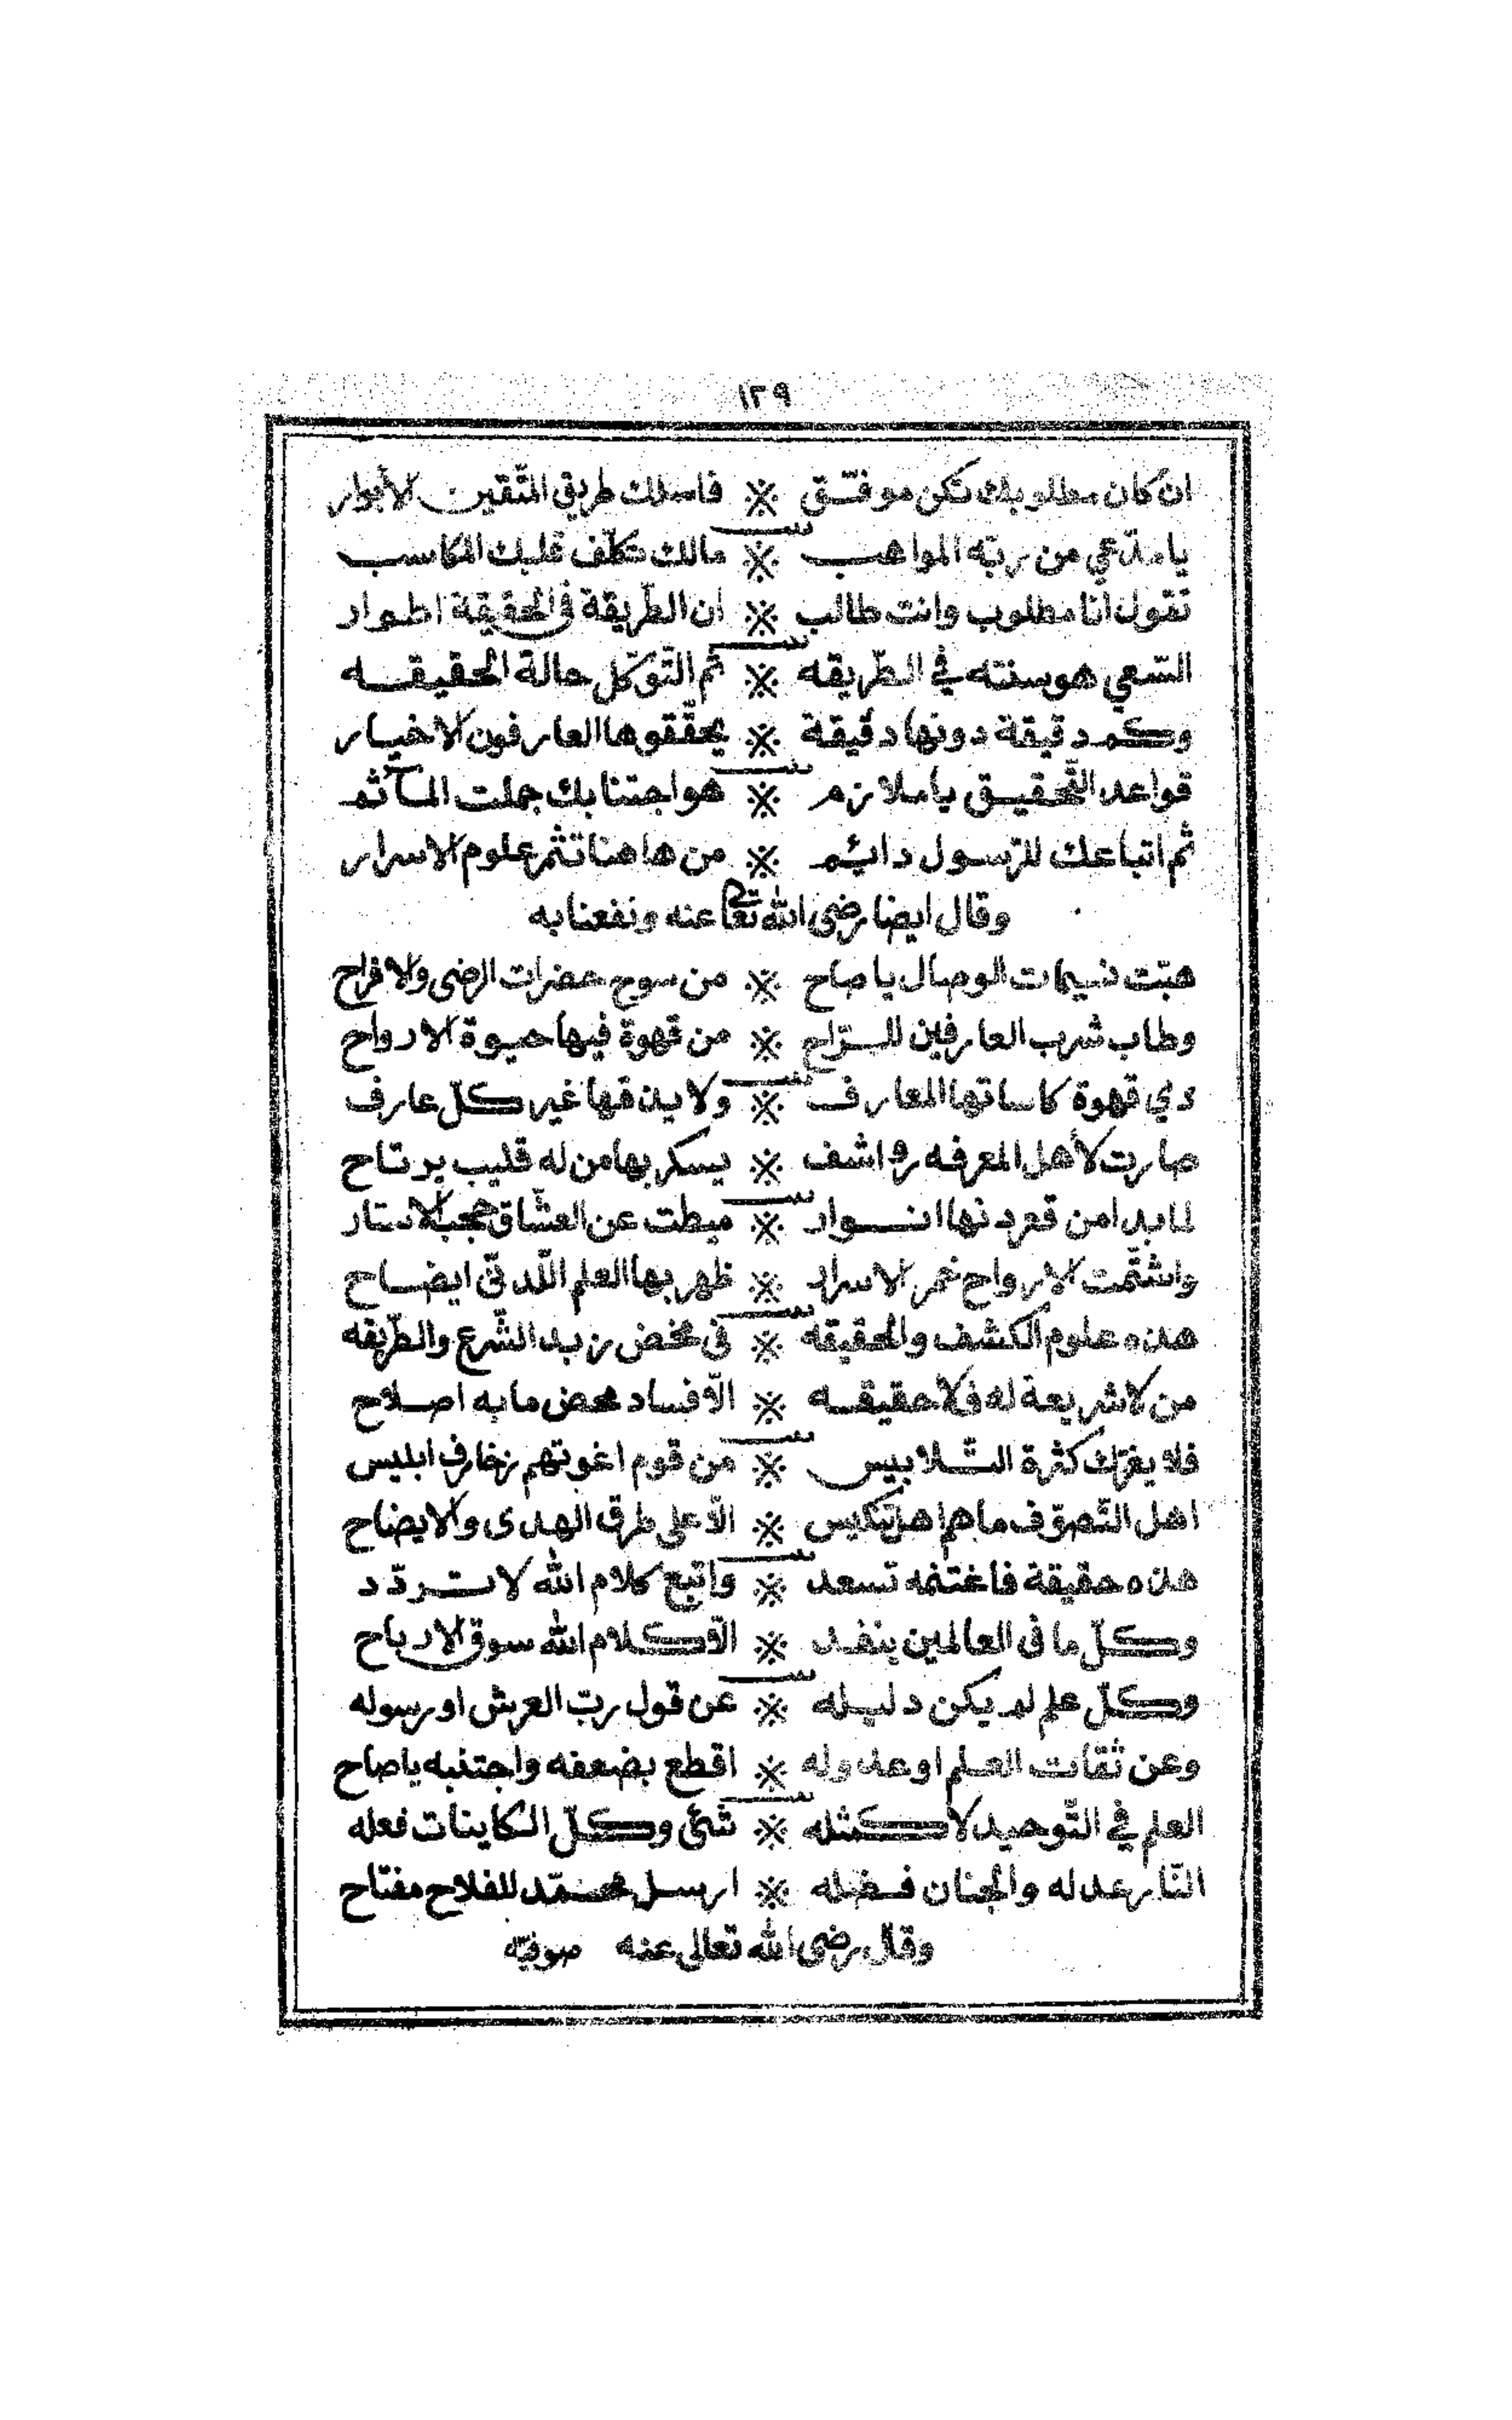 ١٣٩
ان كان مطلوبك تكن موفّق ※ فاسلك طريق المتّقين الأبرار
يا مدّعي من ربّه المواهب ※ مالك تكلّف قلبك المكاسب
تقول انا مطلوب وانت طالب ※ ان الطّريقة في الحقيقة اطوار
السّعي هو سنته في الطّريقه ※ ثم التّوكّل حالة الحقيقه
وكم دقيقة دونها دقيقة ※ يحقّقوها العارفون الاخيار
قواعد التّحقيق يا ملازم ※ هو اجتنابك جملت المآثم
ثم اتباعك للرّسول دائم ※ من هاهنا تثمر علوم الاسرار
وقال ايضا رضى الله تعالى عنه ونفعنا به
هبّت نسيمات الوصال يا صاح ※ من سوح حضرات الرضى والافراح
وطاب شرب العارفين للرّاح ※ من قهوة فيها حيوة الارواح
ذي قهوة كاساتها المعارف ※ ولا يذقها غير كلّ عارف
صارت لأهل المعرفه رواشف ※ يسكر بها من له قليب يرتاح
لما بدا من قعر دنها انوار ※ ميطت عن العشّاق حجب الاستار
واشتّمت الارواح خمر الاسرار ※ ظهر بها العلم اللّدنّي ايضاح
هذه علوم الكشف والحقيقه ※ في مخض زبد الشّرع والطّريقه
من لا شريعة له فلا حقيقه ※ الّا فساد محض ما به اصلاح
فلا يغرّك كثرة التّلابيس ※ من قوم اغوتهم زخارف ابليس
اهل التّصوّف ما هم اهل تنكيس ※ الّا على طرق الهدى والايضاح
هذه حقيقة فاغتنمه تسعد ※ واتبع كلام الله لا تتردّد
وكلّ ما في العالمين ينفد ※ الّا كلام الله سوق الارباح
وكلّ علم لم يكن دليله ※ عن قول ربّ العرش او رسوله
وعن ثقات العلم او عدوله ※ اقطع بضعفه واجتنبه يا صاح
العلم في التّوحيد لا كمثله ※ شئ وكلّ الكاينات فعله
النّار عدله والجنان فضله ※ ارسل محمّد للفلاح مفتاح
وقال رضى الله تعالى عنه صوفيّه